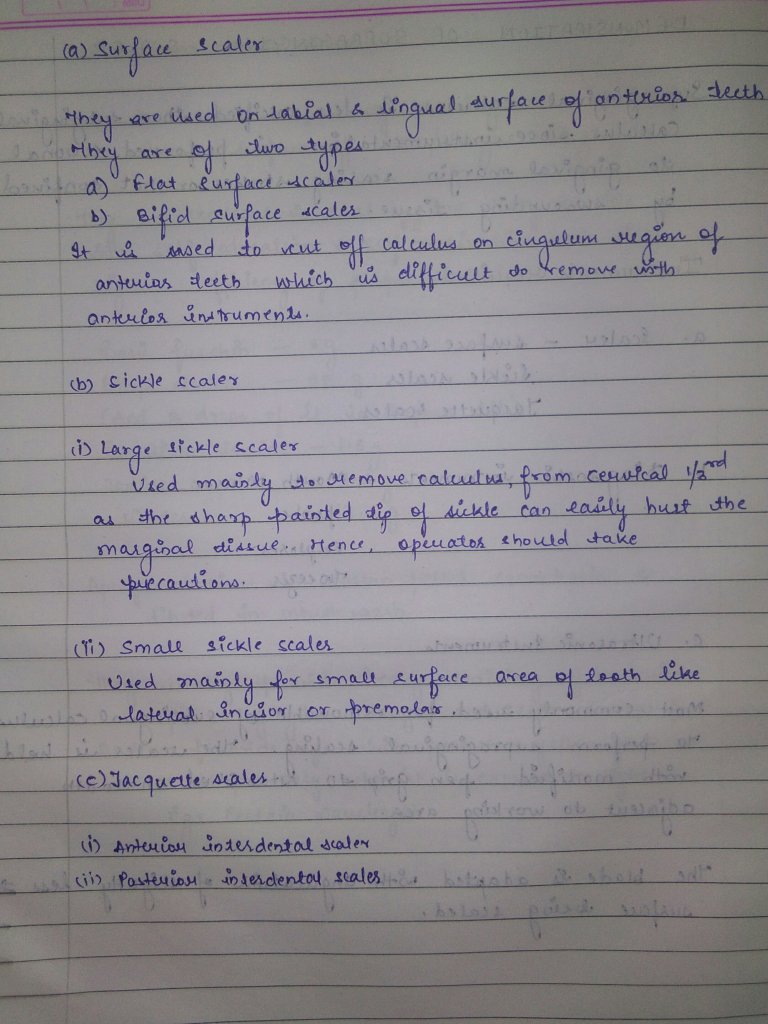 (a) Surface scaler
They are used on labial & lingual surface of anterior teeth
They are of two types
a) Flat surface scaler
b) Bifid surface scaler
It is used to cut off calculus on cingulum region of
anterior teeth which is difficult to remove with
anterior instruments.
(b) Sickle scaler
(i) Large sickle scaler
Used mainly to remove calculus, from cervical 1/3rd
as the sharp painted tip of sickle can easily hurt the
marginal tissue. Hence, operator should take
precautions.
(ii) Small sickle scaler
Used mainly for small surface area of tooth like
lateral incisor or premolar.
(c) Jacquette scaler
(i) Anterior interdental scaler
(ii) Posterior interdental scaler